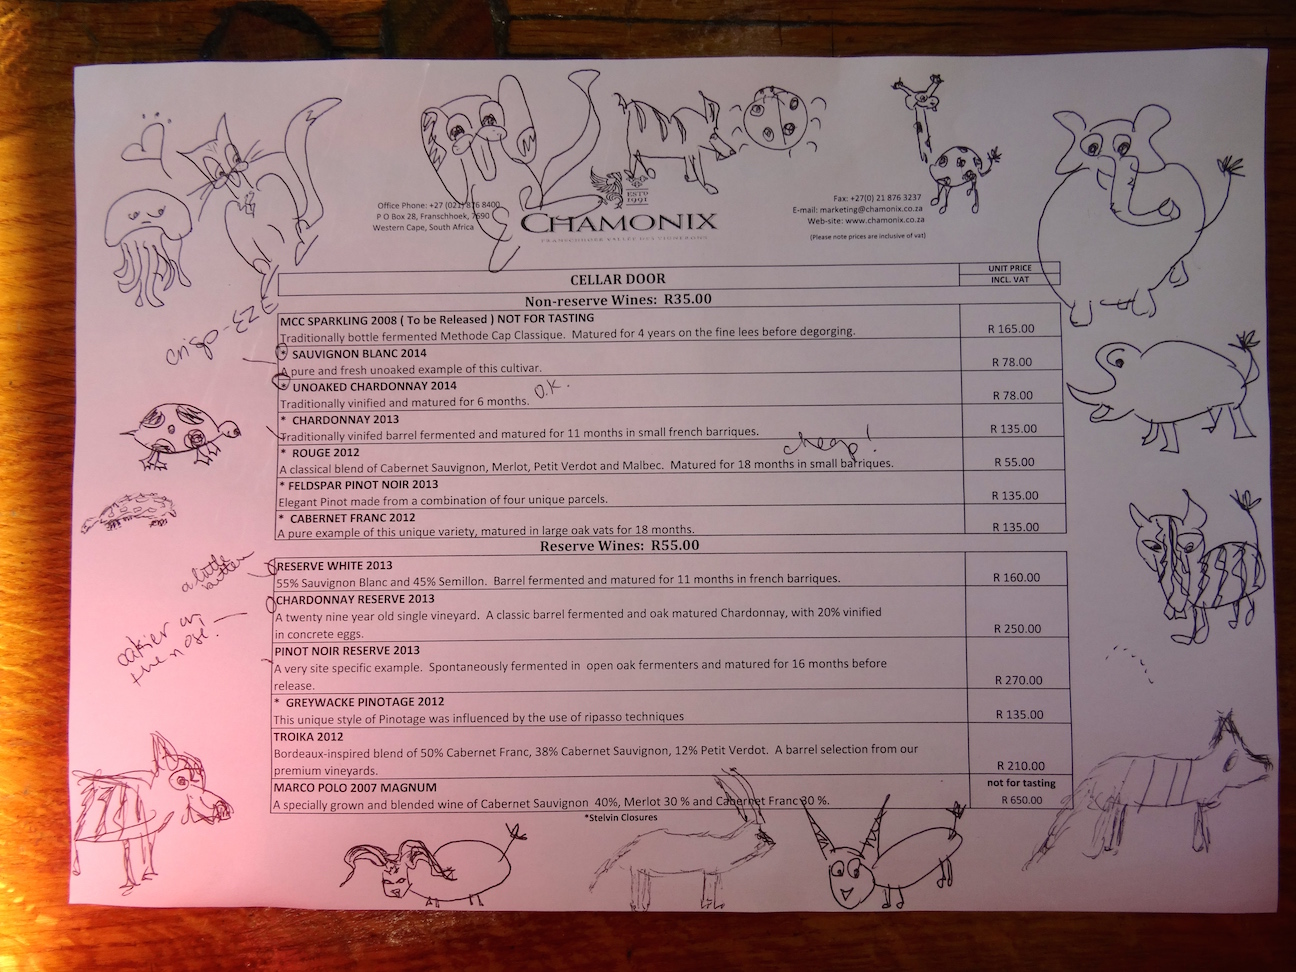 Office Phone: +27 (021) 876 8400
P O Box 28, Franschhoek, 7690
Western Cape, South Africa
ESTD
1991
CHAMONIX
Fax: +27(0) 21 876 3237
E-mail: marketing@chamonix.co.za
Web-site: www.chamonix.co.za
(Please note prices are inclusive of vat)
CELLAR DOOR
UNIT PRICE
INCL. VAT
Non-reserve Wines: R35.00
MCC SPARKLING 2008 ( To be Released ) NOT FOR TASTING
Traditionally bottle fermented Methode Cap Classique. Matured for 4 years on the fine lees before degorging.
R 165.00
crisp-EZZ
* SAUVIGNON BLANC 2014
A pure and fresh unoaked example of this cultivar.
R 78.00
* UNOAKED CHARDONNAY 2014
Traditionally vinified and matured for 6 months.
O.K.
R 78.00
* CHARDONNAY 2013
Traditionally vinifed barrel fermented and matured for 11 months in small french barriques.
R 135.00
cheap!
* ROUGE 2012
A classical blend of Cabernet Sauvignon, Merlot, Petit Verdot and Malbec. Matured for 18 months in small barriques.
R 55.00
* FELDSPAR PINOT NOIR 2013
Elegant Pinot made from a combination of four unique parcels.
R 135.00
* CABERNET FRANC 2012
A pure example of this unique variety, matured in large oak vats for 18 months.
R 135.00
Reserve Wines: R55.00
a little
RESERVE WHITE 2013
55% Sauvignon Blanc and 45% Semillon. Barrel fermented and matured for 11 months in french barriques.
R 160.00
oakier on
the nose!
CHARDONNAY RESERVE 2013
A twenty nine year old single vineyard. A classic barrel fermented and oak matured Chardonnay, with 20% vinified
in concrete eggs.
R 250.00
PINOT NOIR RESERVE 2013
A very site specific example. Spontaneously fermented in open oak fermenters and matured for 16 months before
release.
R 270.00
* GREYWACKE PINOTAGE 2012
This unique style of Pinotage was influenced by the use of ripasso techniques
R 135.00
TROIKA 2012
Bordeaux-inspired blend of 50% Cabernet Franc, 38% Cabernet Sauvignon, 12% Petit Verdot. A barrel selection from our
premium vineyards.
R 210.00
MARCO POLO 2007 MAGNUM
not for tasting
A specially grown and blended wine of Cabernet Sauvignon 40%, Merlot 30 % and Cabernet Franc 30 %.
R 650.00
*Stelvin Closures